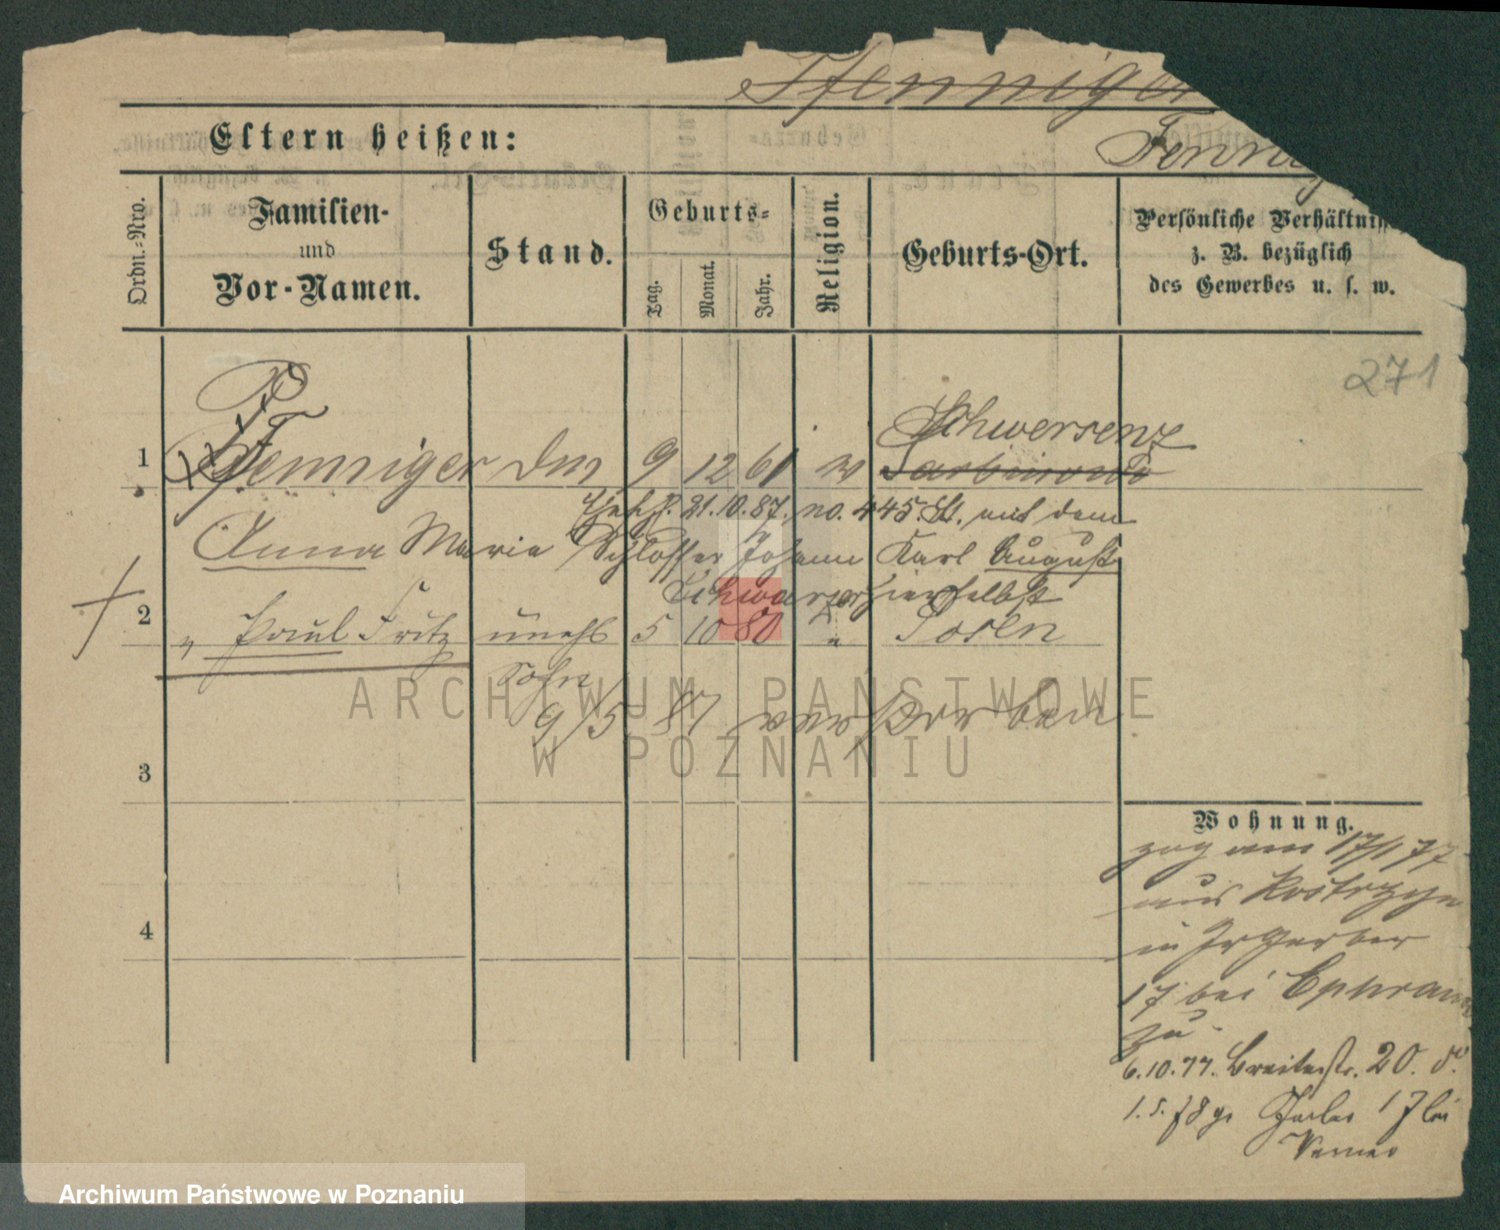 Pfenniger
Fennig
Eltern heißen:
Ordn.-Nro.
Familien-
und
Vor-Namen.
Stand.
Geburts-
Tag.
Monat.
Jahr.
Religion.
Geburts-Ort.
Persönliche Verhältnisse
z. B. bezüglich
des Gewerbes u. s. w.
271
Schwersenz
1 Pfenniger 9 12 61
21.10.87. no. 445. St. mit dem
Anna Maria Schlosser Johann Karl August
Schwarzer hierselbst
2 " Paul Fritz unehl 5 10 80 " Posen
Sohn
9/5 87 verstorben
3
Wohnung.
zog am 17/1 77
aus Kostrzyn
in Gr Gerber
17 bei Ephraim
zu
4
6.10.77. Breitestr. 20.
1.5.78 17 bei
ARCHIWUM PAŃSTWOWE
W POZNANIU
Archiwum Państwowe w Poznaniu